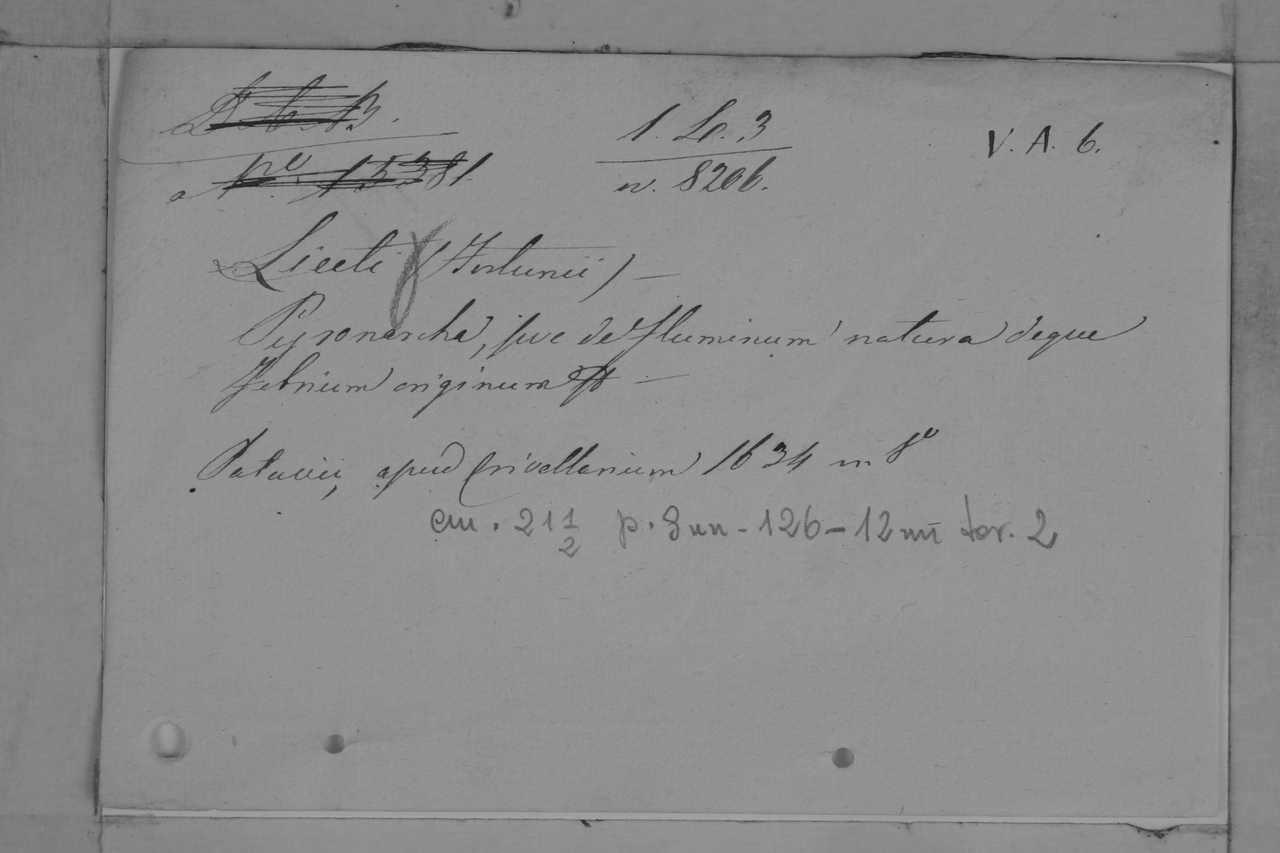 1. Lo. 3
V. A. 6.
Nº. 15381.
n. 8206.
Liceti (Fortunii) —
Pyronarcha, sive de fluminum natura deque
febrium originum —
Patavii, apud Crivellarium 1634 in 8º
cm. 21 1/2 p. 8 nn - 126 - 12 nn tav. 2